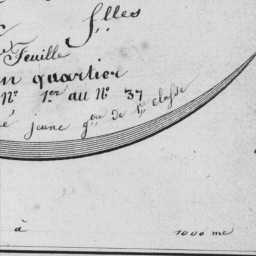 S.lles
Feuille
n quartier
N° 1er au N° 37
é jeune g de 1re classe
à
1000 me